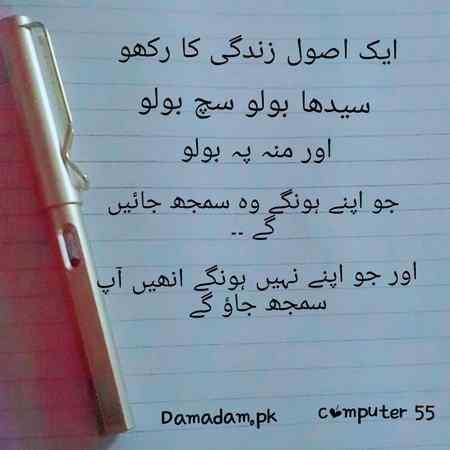 ایک اصول زندگی کا رکھو
سیدھا بولو سچ بولو
اور منہ پہ بولو
جو اپنے ہونگے وہ سمجھ جائیں
گے ۔۔
اور جو اپنے نہیں ہونگے انھیں آپ
سمجھ جاؤ گے
Damadam.pk C🍎mputer 55